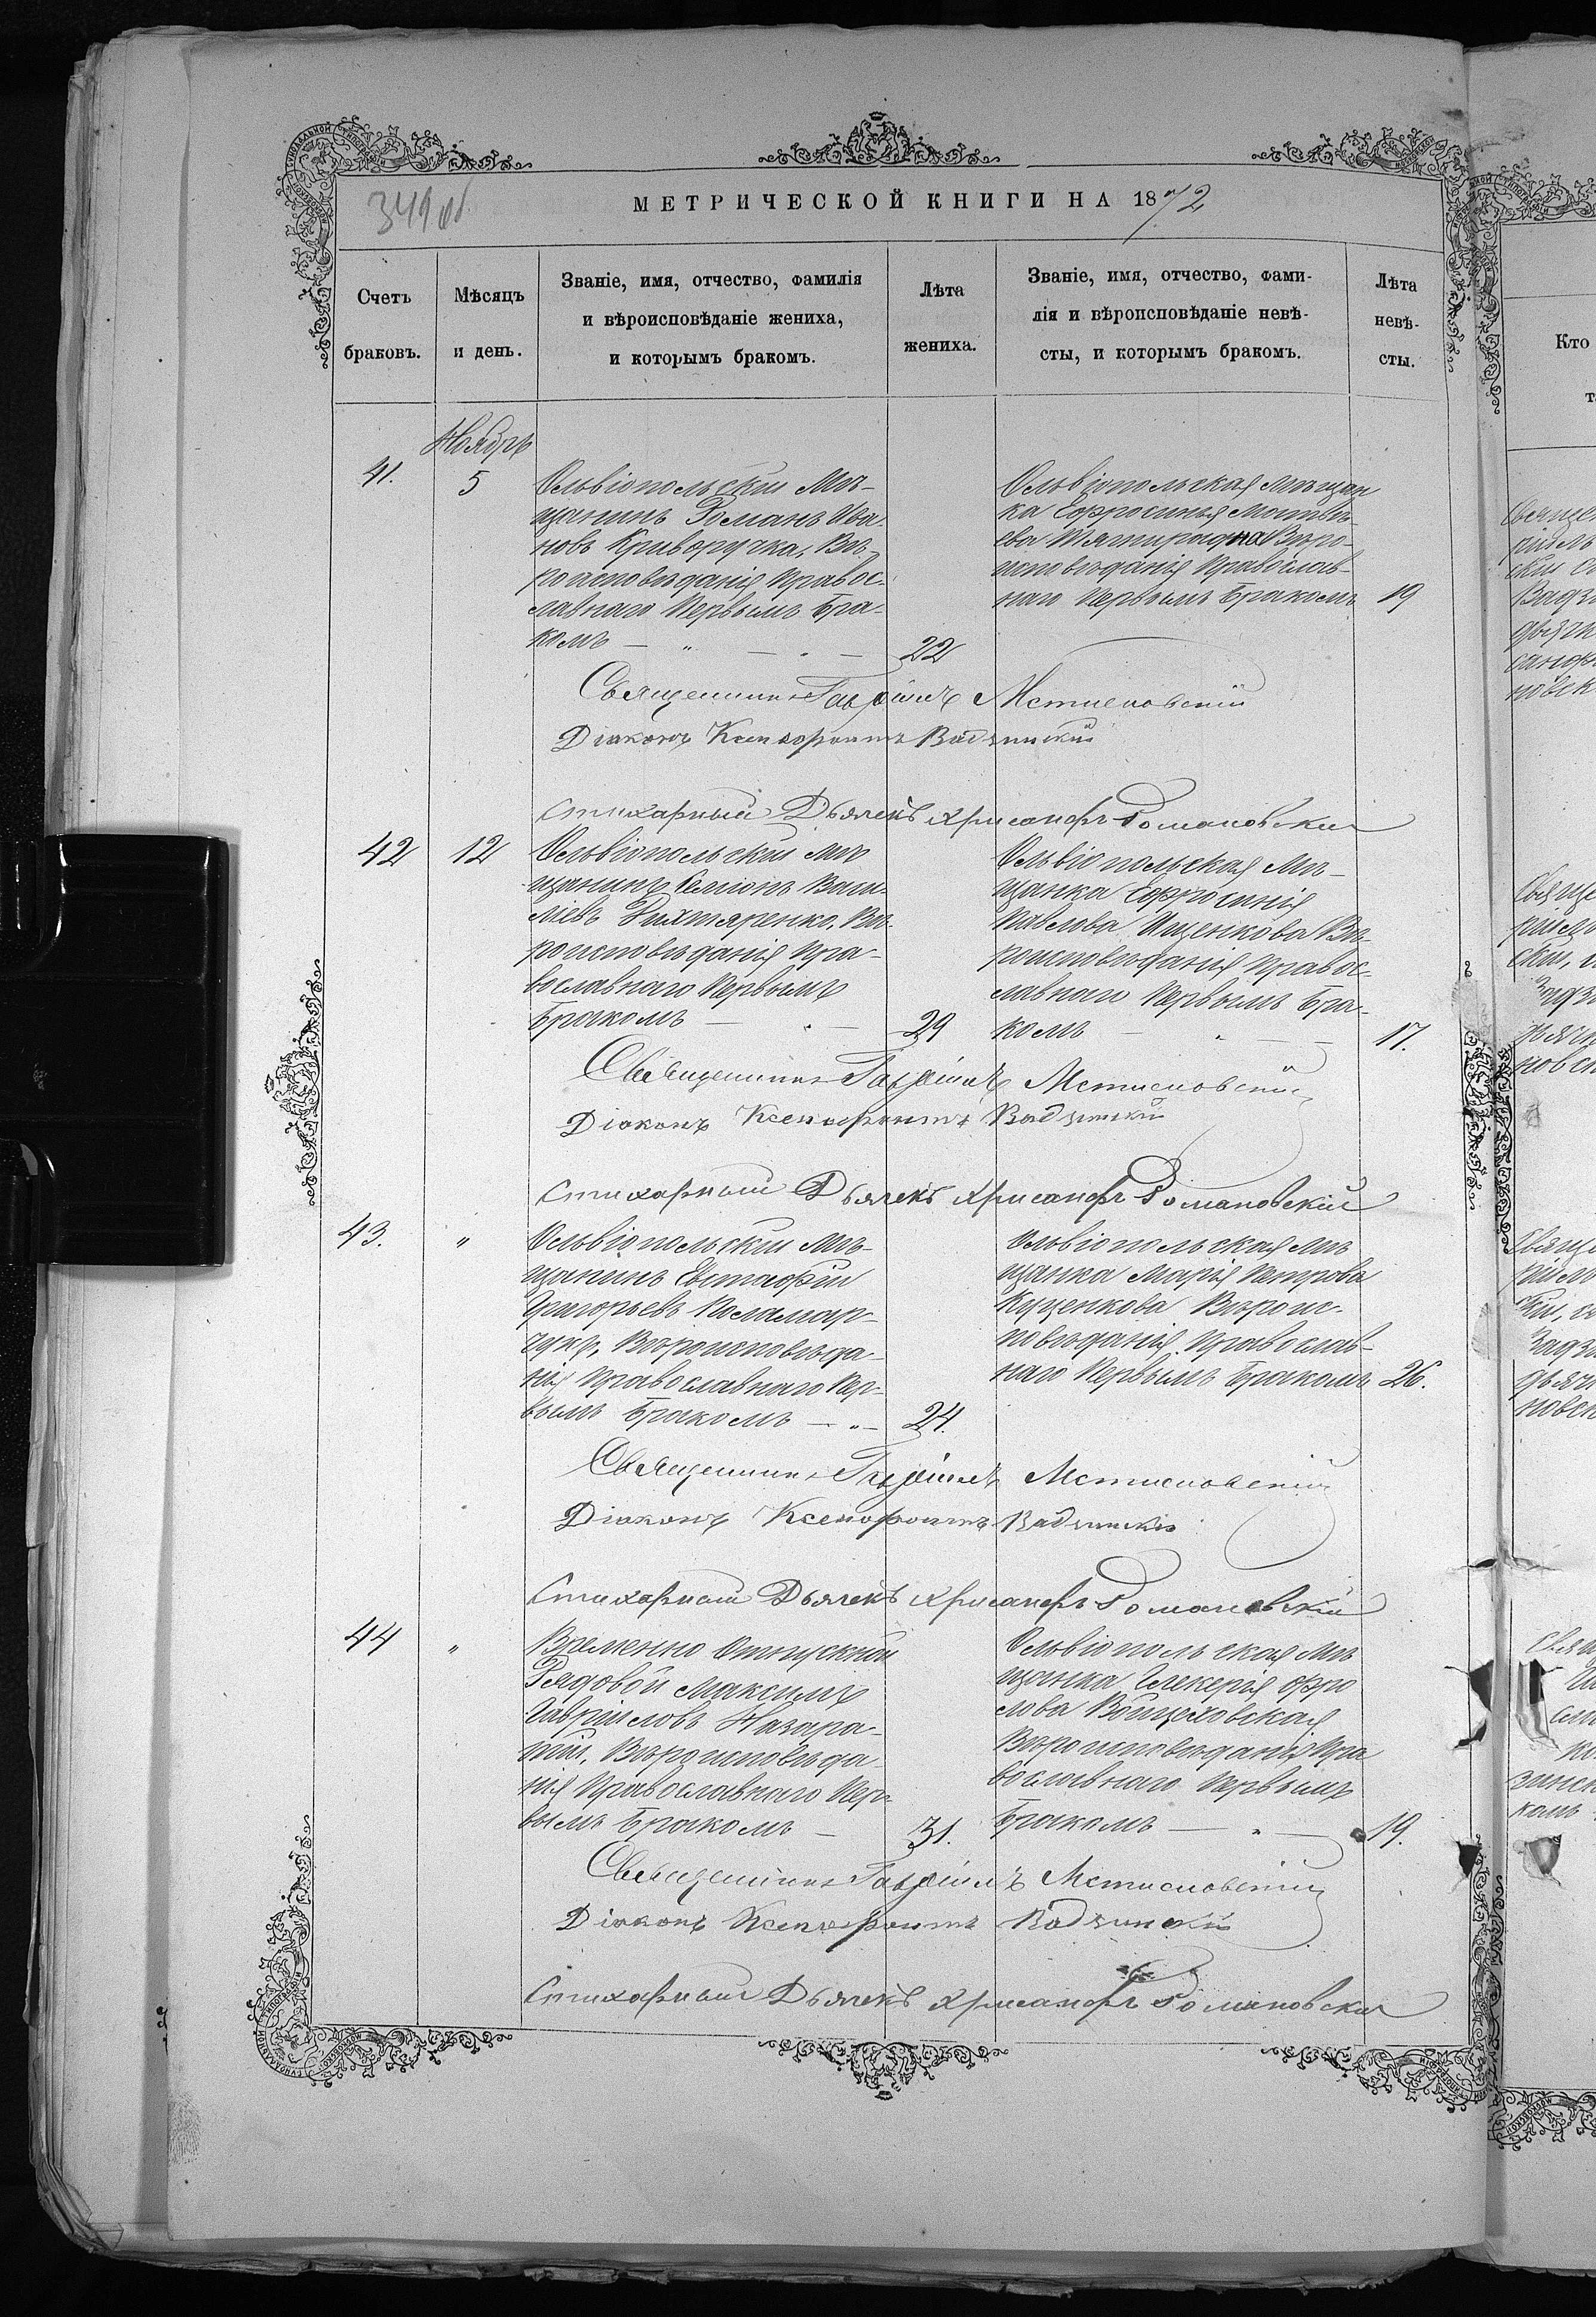 349 об
МЕТРИЧЕСКОЙ КНИГИ НА 1872
Счетъ браковъ.
Мѣсяцъ и день.
Званіе, имя, отчество, фамилія
и вѣроисповѣданіе жениха,
и которымъ бракомъ.
Лѣта жениха.
Званіе, имя, отчество, фами-
лія и вѣроисповѣданіе невѣ-
сты, и которымъ бракомъ.
Лѣта невѣ-
сты.
Ноябрь
41.
5
Ольвіопольскій Мѣ-
щанинъ Романъ Ива-
новъ Криворучка, Вѣ-
роисповѣданія Правос-
лавнаго Первымъ Бра-
комъ — " — . —
22
Ольвіопольская мѣщан
ка Евфросинья Матвѣ-
ева Вѣро-
исповѣданія Православ-
наго Первымъ Бракомъ
19
Священникъ Гавріилъ Мстиславскій
Діаконъ Ксенофонтъ Вадзинскій
Стихарный Дьячекъ Хрисанфъ Романовскій
42
12
Ольвіопольскій мѣ
щанинъ Семіонъ Васи-
ліевъ Дихтяренко, Вѣ-
роисповѣданія Пра-
вославнаго Первымъ
Бракомъ — . —
29
Ольвіопольская Мѣ-
щанка Евфросинія
Павлова Ищенкова Вѣ-
роисповѣданія Правос-
лавнаго Первымъ Бра-
комъ — " — —
17.
Священникъ Гавріилъ Мстиславскій
Діаконъ Ксенофонтъ Вадзинскій
Стихарный Дьячекъ Хрисанфъ Романовскій
43.
"
Ольвіопольскій мѣ-
щанинъ Евстафій
Григорьевъ Паламар-
чукъ, Вѣроисповѣда-
нія Православнаго Пер-
вымъ Бракомъ — " —
24.
Ольвіопольская мѣ
щанка Марія Петрова
Куценкова Вѣроис-
повѣданія Православ-
наго Первымъ Бракомъ
26.
Священникъ Гавріилъ Мстиславскій
Діаконъ Ксенофонтъ Вадзинскій
Стихарный Дьячекъ Хрисанфъ Романовскій
44
"
Временно Отпускной
Рядовой Максимъ
Гавріиловъ
Вѣроисповѣда-
нія Православнаго Пер-
вымъ Бракомъ —
31.
Ольвіопольская Мѣ
щанка Гликерія Фро
лова Войцеховская
Вѣроисповѣданія Пра
вославнаго Первымъ
Бракомъ — " —
19.
Священникъ Гавріилъ Мстиславскій
Діаконъ Ксенофонтъ Вадзинскій
Стихарный Дьячекъ Хрисанфъ Романовскій
Кто